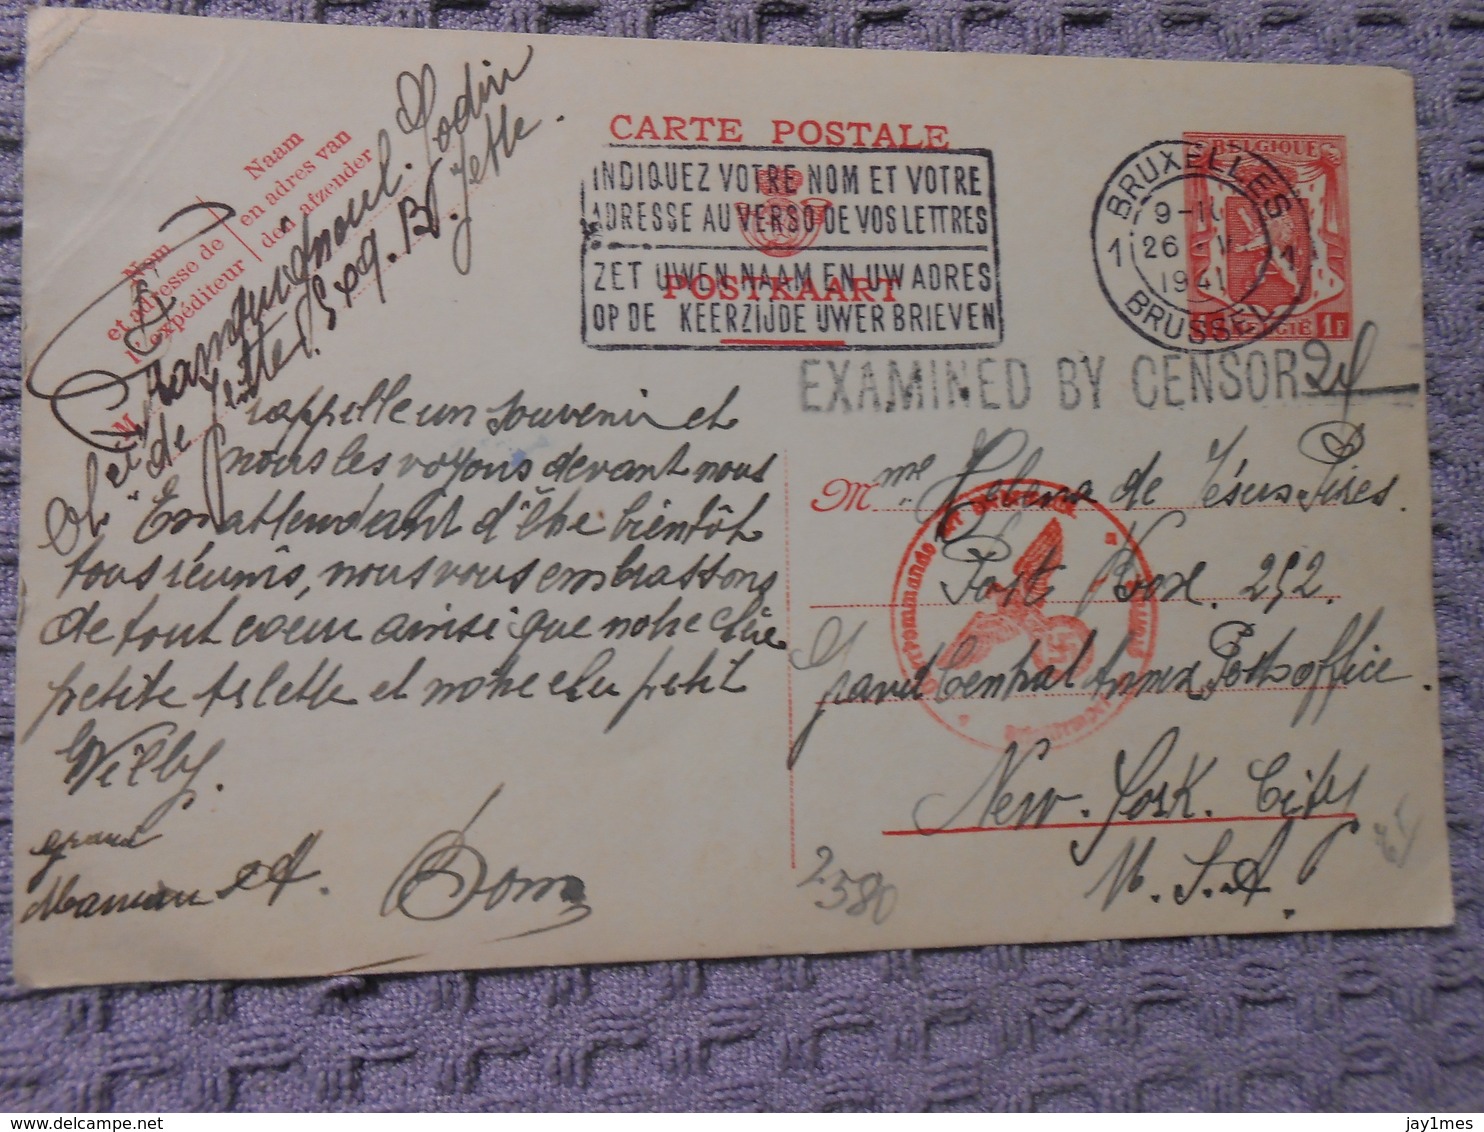 CARTE POSTALE
POSTKAART
INDIQUEZ VOTRE NOM ET VOTRE
ADRESSE AU VERSO DE VOS LETTRES
ZET UWEN NAAM EN UW ADRES
OP DE KEERZIJDE UWER BRIEVEN
BRUXELLES
1 1
26
1941
BRUSSEL
BELGIQUE
BELGIË 1F
EXAMINED BY CENSOR
Naam
en adres van
den afzender
Nom
et adresse de
l'expéditeur
M
Jette
rappelle un souvenir et
nous les voyons devant nous
En attendant d'être bientôt
tous réunis, nous vous embrassons
de tout coeur ainsi que notre chère
petite Arlette et notre cher petit
Willy.
grand
Maman et
Bom
Mme Helena de Jésus Pires
Post Box. 252.
Grand Central Annex Post office.
New. York. City
U. S. A.
2580
jay1mes